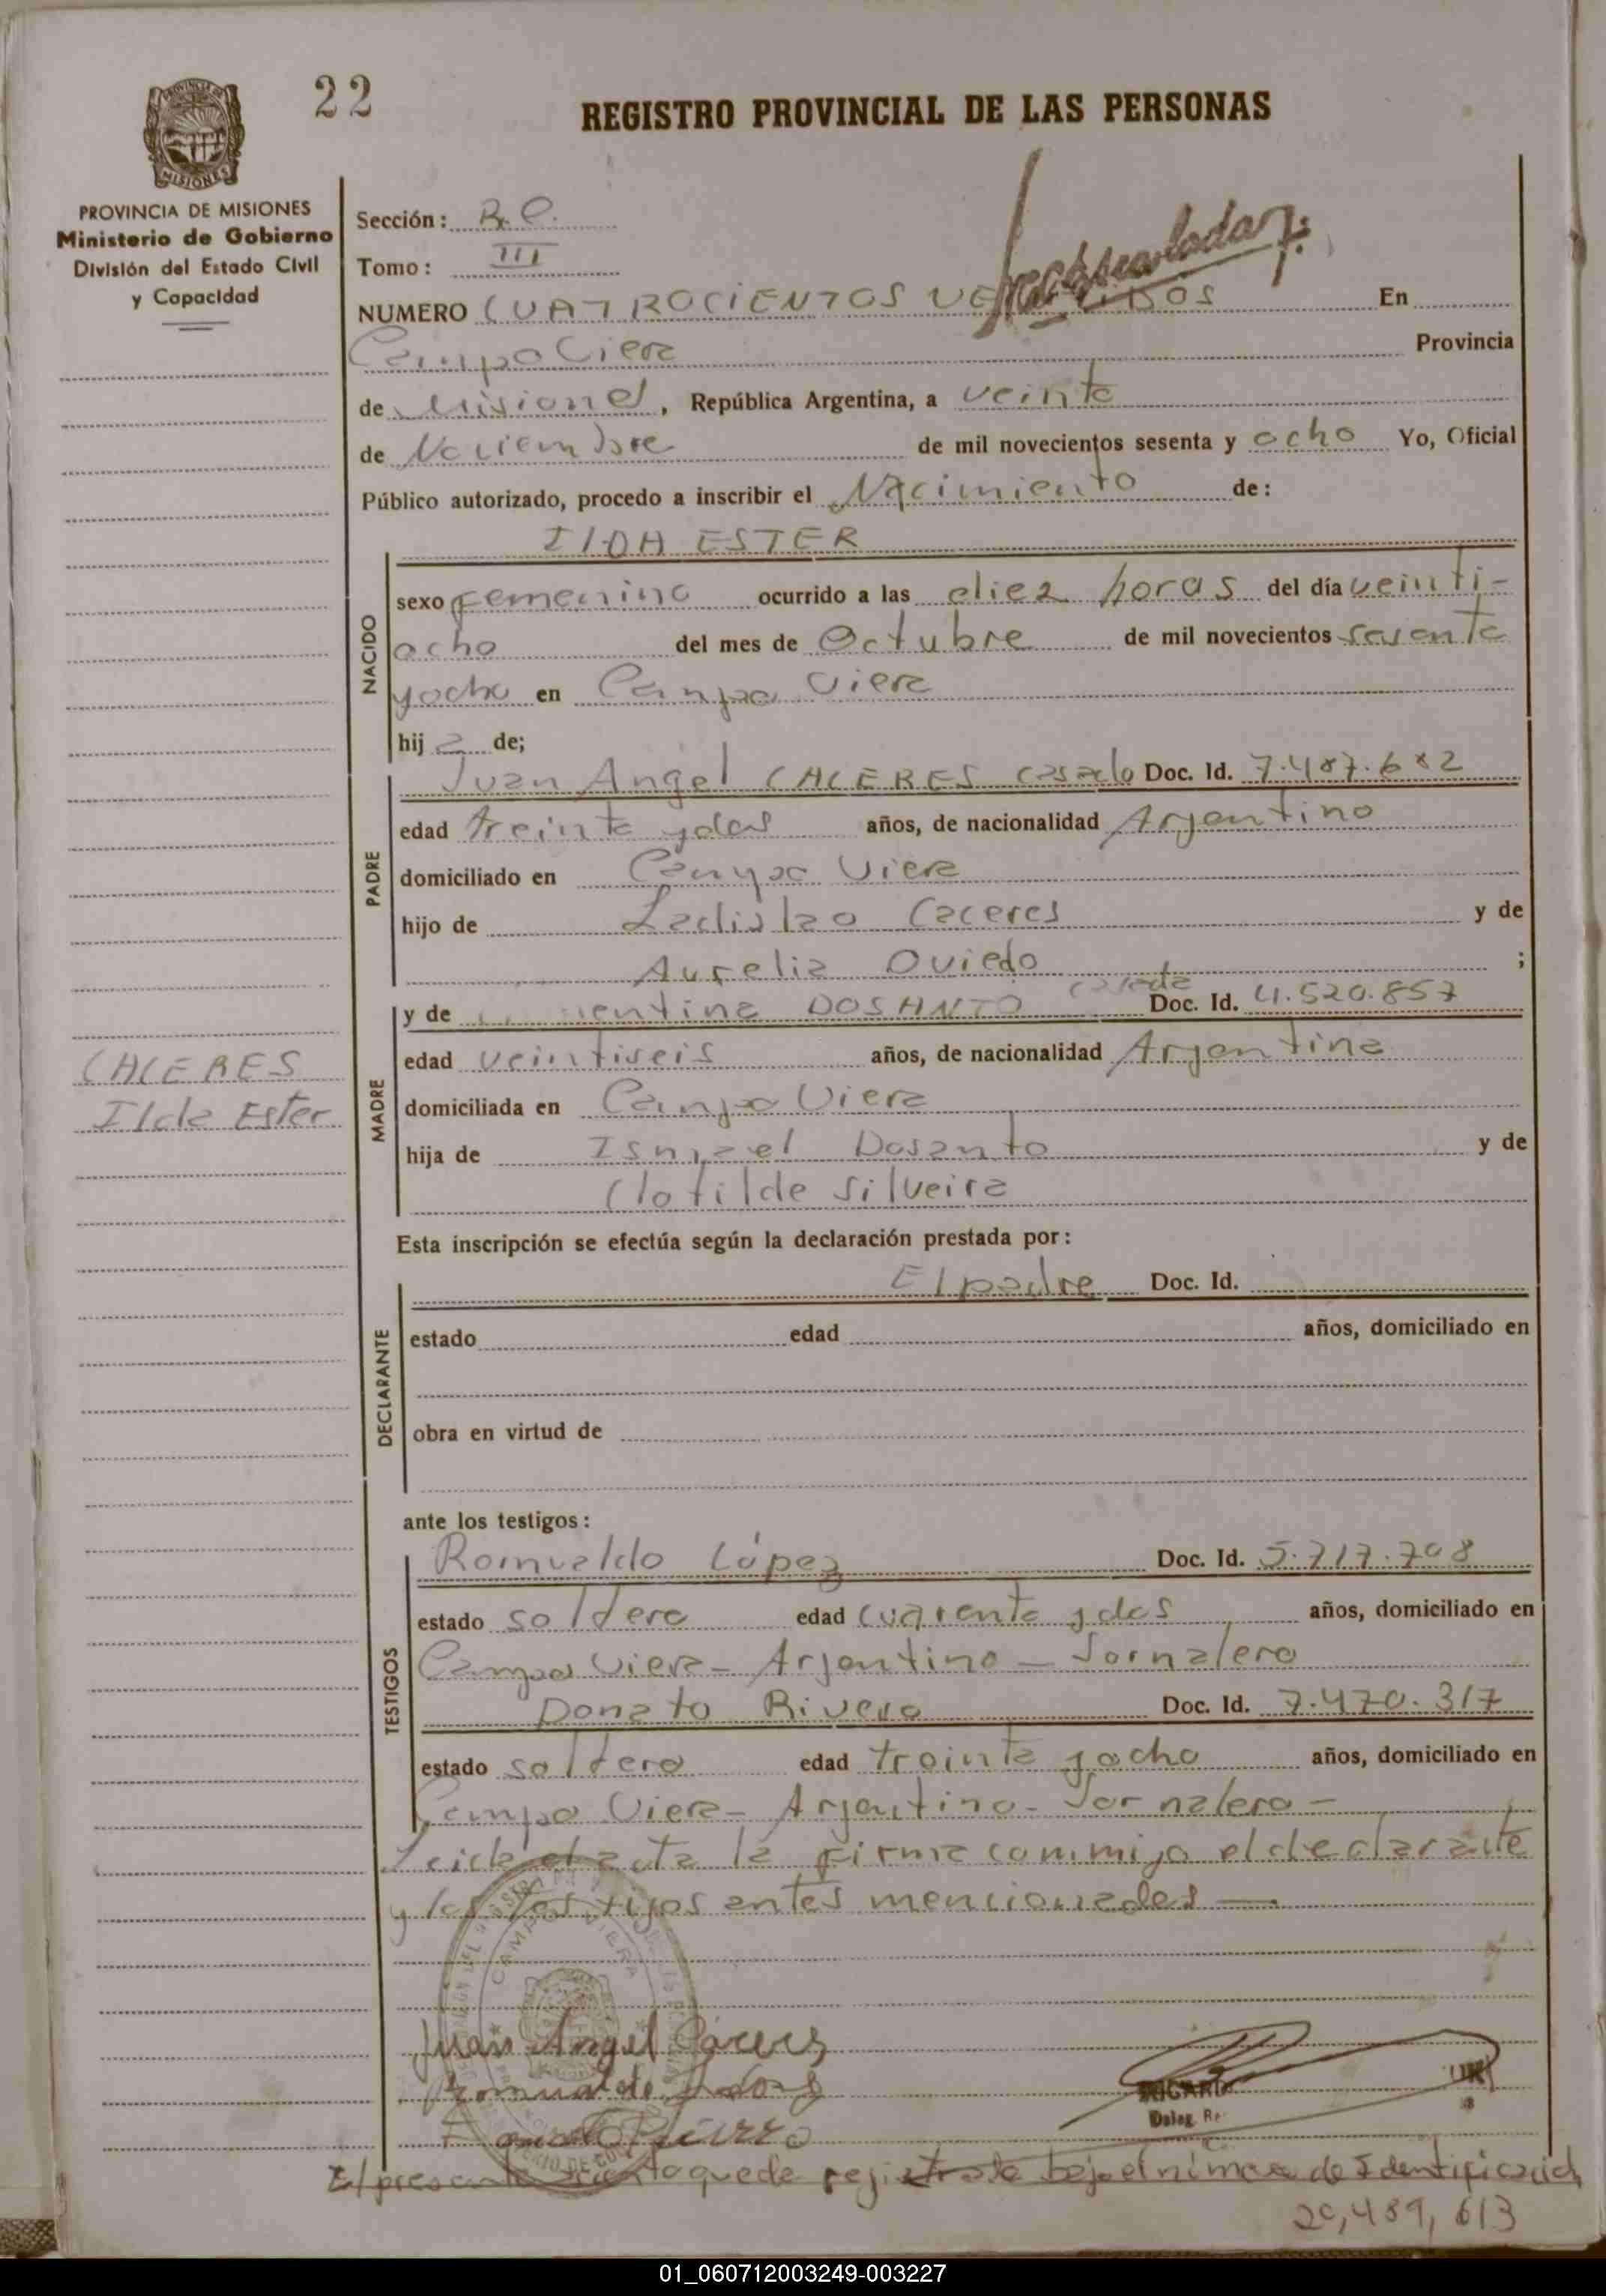 22
REGISTRO PROVINCIAL DE LAS PERSONAS
PROVINCIA DE MISIONES
Ministerio de Gobierno
División del Estado Civil
y Capacidad
Sección: R. C.
Tomo: III
NUMERO CUATROCIENTOS En
Campo Viera Provincia
de Misiones, República Argentina, a veinte
de Noviembre de mil novecientos sesenta y ocho Yo, Oficial
Público autorizado, procedo a inscribir el Nacimiento de:
NACIDO
ILDA ESTER
sexo femenino ocurrido a las diez horas del día veinti-
ocho del mes de Octubre de mil novecientos sesenta
y ocho en Campo Viera
hij a de;
PADRE
Juan Angel CACERES casado Doc. Id. 7.487.682
edad treinta y dos años, de nacionalidad Argentino
domiciliado en Campo Viera
hijo de Ladislao Caceres y de
Aurelia Oviedo ;
MADRE
y de DOSANTO casada Doc. Id. 4.520.857
edad veintiseis años, de nacionalidad Argentina
domiciliada en Campo Viera
hija de Ismael Dosanto y de
Clotilde Silveira
CACERES
Ilda Ester
Esta inscripción se efectúa según la declaración prestada por:
DECLARANTE
El padre Doc. Id.
estado edad años, domiciliado en
obra en virtud de
ante los testigos:
TESTIGOS
Romualdo López Doc. Id. 5.717.708
estado soltero edad cuarenta y dos años, domiciliado en
Campo Viera - Argentino - Jornalero
Donato Rivero Doc. Id. 7.470.317
estado soltero edad treinta y ocho años, domiciliado en
Campo Viera - Argentino - Jornalero -
Leida el acta la firma conmigo el declarante
y los testigos antes mencionados —
Juan Angel Cáceres
Romualdo López
RICARDO
Deleg. Re
El presente asiento quede registrado bajo el número de Identificación
20,489,613
01_060712003249-003227